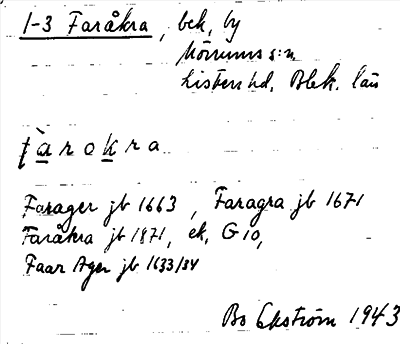 1-3 Faråkra, bek, by
Mörrums s:n
Listers hd, Blek. län
fàrokra
Farager jb 1663, Faragra jb 1671
Faråkra jb 1871, ek, G10,
Faar Ager jb 1633/34
Bo Ekström 1943